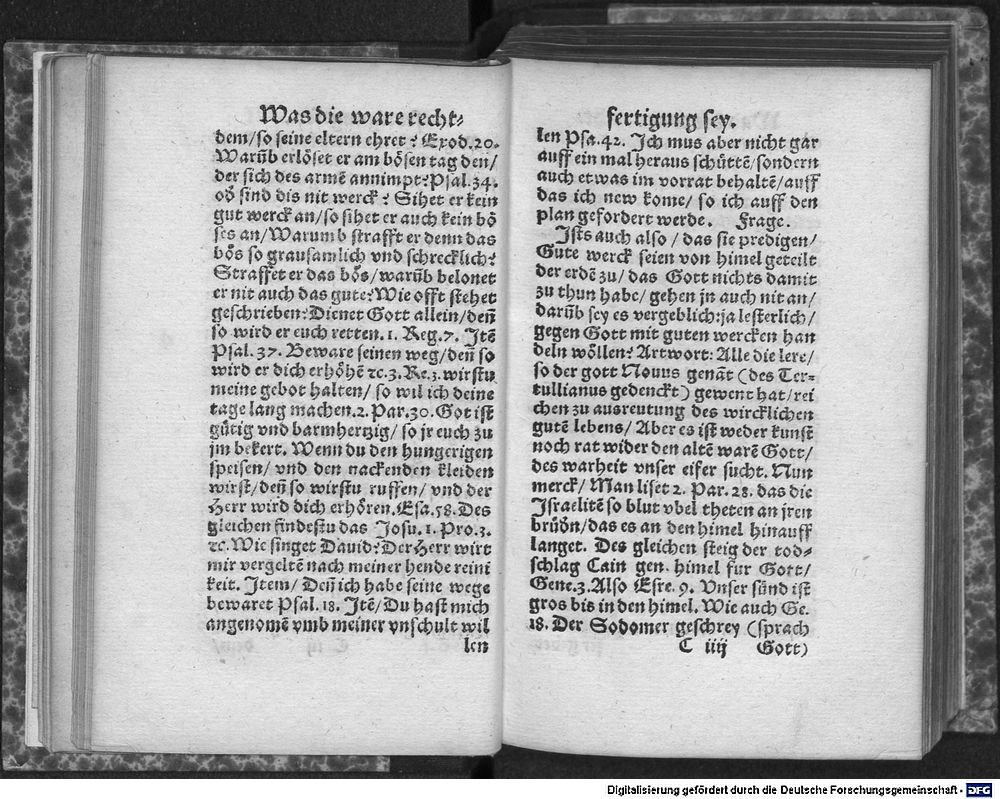 Was die ware recht⸗
dem/so seine eltern ehret? Exod.20.
Warūb erlöset er am bösen tag den/
der sich des armē annimpt? Psal.34.
ob sind dis nit werck? Sihet er kein
gut werck an/so sihet er auch kein bö
ses an/Warumb strafft er denn das
bös so grausamlich vnd schrecklich?
Straffet er das bös/warūb belonet
er nit auch das gute? Wie offt stehet
geschrieben? Dienet Gott allein/deñ
so wird er euch retten.1. Reg.7. Jtē
Psal.37. Beware seinen weg/deñ so
wird er dich erhöhē ꝛc.3.Re.3.wirstu
meine gebot halten/ so wil ich deine
tage lang machen.2. Par.30. Got ist
gütig vnd barmhertzig/ so jr euch zu
jm bekert. Wenn du den hungerigen
speisen/ vnd den nackenden kleiden
wirst/deñ so wirstu ruffen/ vnd der
Herr wird dich erhören.Esa.58.Des
gleichen findestu das Josu.1. Pro.3.
ꝛc. Wie singet Dauid? Der Herr wirt
mir vergeltē nach meiner hende reini
keit. Jtem/ Deñ ich habe seine wege
bewaret Psal.18. Jtē/Du hast mich
angenomē vmb meiner vnschult wil
len
fertigung sey.
len Psa.42. Jch mus aber nicht gar
auff ein mal heraus schüttē/sondern
auch etwas im vorrat behaltē/auff
das ich new kome/ so ich auff den
plan gefordert werde. Frage.
Jsts auch also/ das sie predigen/
Gute werck seien von himel geteilt
der erdē zu/das Gott nichts damit
zu thun habe/gehen jn auch nit an/
darūb sey es vergeblich:ja lesterlich/
gegen Gott mit guten wercken han
deln wöllen? Artwort: Alle die lere/
so der gott Nouus genāt (des Ter⸗
tullianus gedenckt) gewent hat/rei
chen zu ausreutung des wircklichen
gutē lebens/ Aber es ist weder kunst
noch rat wider den altē warē Gott/
des warheit vnser eifer sucht. Nun
merck/ Man liset 2. Par.28. das die
Jsraelitē so blut vbel theten an jren
brüdn/das es an den himel hinauff
langet. Des gleichen steig der tod⸗
schlag Cain gen himel fur Gott/
Gene.3. Also Esre. 9. Vnser sünd ist
gros bis in den himel. Wie auch Ge.
18. Der Sodomer geschrey (sprach
C iiij Gott)
Digitalisierung gefördert durch die Deutsche Forschungsgemeinschaft - DFG